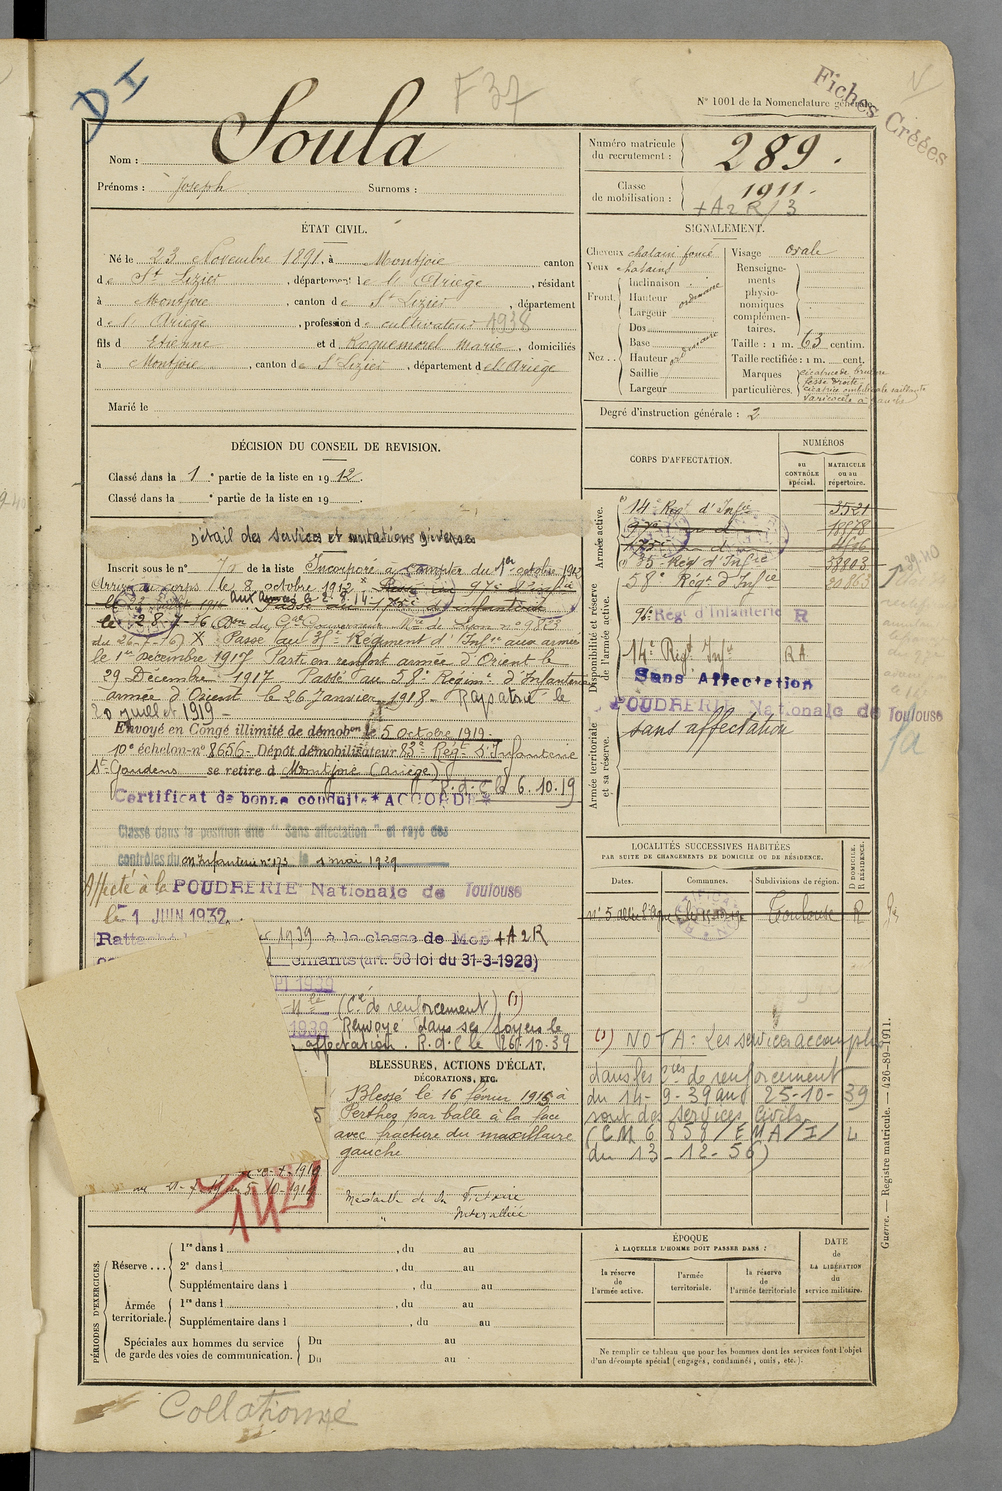 DI
F37
N° 1001 de la Nomenclature générale.
Fiches Créées
Nom : Soula
Prénoms : Joseph Surnoms :
Numéro matricule du recrutement : 289.
Classe de mobilisation : 1911.
+A2R/3
ÉTAT CIVIL.
Né le 23 Novembre 1891, à Montjoie canton
de St Lizier, département de l'Ariège, résidant
à Montjoie, canton de St Lizier, département
de l'Ariège, profession de cultivateur 1938
fils d' Etienne et d Roquemorel Marie, domiciliés
à Montjoie, canton de St Lizier, département de l'Ariège
Marié le
SIGNALEMENT.
Cheveux chatain foncé
Yeux chatains
Front. Inclinaison
Hauteur ordinaire
Largeur
Nez... Dos
Base
Hauteur ordinaire
Saillie
Largeur
Visage ovale
Renseignements physionomiques complémentaires.
Taille : 1 m. 63 centim.
Taille rectifiée : 1 m. cent.
Marques particulières. cicatrice de brulure
fesse droite
cicatrice ombilicale saillante
varicocèle à gauche
Degré d'instruction générale : 2
DÉCISION DU CONSEIL DE REVISION.
Classé dans la 1e partie de la liste en 1912.
Classé dans la e partie de la liste en 19 .
Détail des services et mutations diverses
Inscrit sous le n° de la liste Incorporé à compter du 1er octobre 1912
Arrivé au corps le 8 octobre 1912
aux armées
le 28-7-16 du Gal Gouverneur Mre de Lyon n° 9823
du 26-7-16) X Passé au 35e Régiment d'Infie aux armées
le 1er Décembre 1917 Parti en renfort armée d'Orient le
29 Décembre 1917 Passé au 58e Régimt d'Infanterie
armée d'Orient le 26 Janvier 1918 - Rapatrié le
20 juillet 1919 -
Envoyé en Congé illimité de démobon le 5 octobre 1919.
10e échelon - n° 8656 - Dépôt démobilisateur 83e Régt d'Infanterie
St Gaudens se retire à Montjoie (Ariège)
R.d.C le 6.10.19
Certificat de bonne conduite "ACCORDÉ"
Classé dans la position dite "Sans affectation" et rayé des
contrôles du cm Infanterie n° 173 le 1 mai 1929
Affecté à la POUDRERIE Nationale de Toulouse
le 1 JUIN 1932.
1939 à la classe de Mob +A2R
enfants (art. 58 loi du 31-3-1928)
1939
(Cie de renforcement) (1)
1939 Renvoyé dans ses foyers le
affectation. R.d.C le 26.10.39
CORPS D'AFFECTATION.
NUMÉROS
au CONTRÔLE spécial.
MATRICULE ou au répertoire.
Armée active.
14e Régt d'Infie 3521
97e 18978
175e
35e Régt d'Infie 38808
58e Régt d'Infie 20863
Disponibilité et réserve de l'armée active.
9e Reg d'Infanterie R
14e Régt Infie RA
Sans Affectation
POUDRERIE Nationale de Toulouse
Armée territoriale et sa réserve.
sans affectation
LOCALITÉS SUCCESSIVES HABITÉES
PAR SUITE DE CHANGEMENTS DE DOMICILE OU DE RÉSIDENCE.
Dates. Communes. Subdivisions de région. D DOMICILE. R RÉSIDENCE.
n° 5 Toulouse R
BLESSURES, ACTIONS D'ÉCLAT,
DÉCORATIONS, ETC.
Blessé le 16 février 1915 à
Perthes par balle à la face
avec fracture du maxillaire
gauche
Médaille de la Victoire
" Interalliée
(1) NOTA : Les services accomplis
dans les Cies de renforcement
du 14-9-39 au 25-10-39
sont des services civils
(CM 6 858/EMA/I/L
du 13-12-56)
PÉRIODES D'EXERCICES.
Réserve... 1re dans l , du au
2e dans l , du au
Supplémentaire dans l , du au
Armée territoriale. 1re dans l , du au
Supplémentaire dans l , du au
Spéciales aux hommes du service de garde des voies de communication. Du au
Du au
ÉPOQUE
À LAQUELLE L'HOMME DOIT PASSER DANS :
la réserve de l'armée active.
l'armée territoriale.
la réserve de l'armée territoriale
DATE de LA LIBÉRATION du service militaire.
Ne remplir ce tableau que pour les hommes dont les services font l'objet
d'un décompte spécial (engagés, condamnés, omis, etc.).
Guerre. — Registre matricule. — 426-89-1911.
Collationné